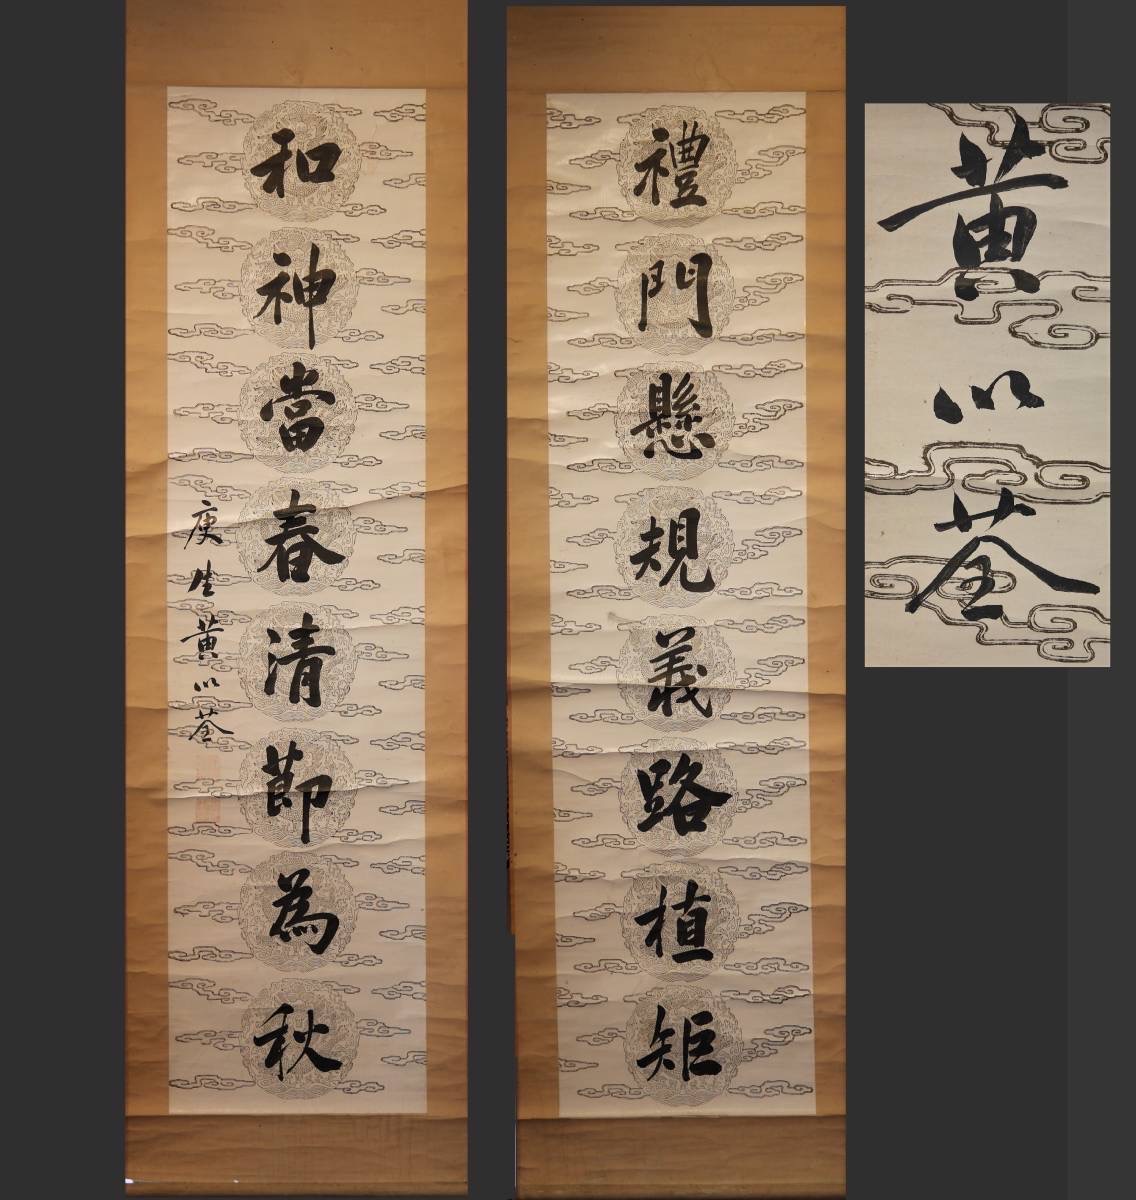 禮門懸規義路植矩
和神當春清節為秋
庚生黃以荃
黃以荃